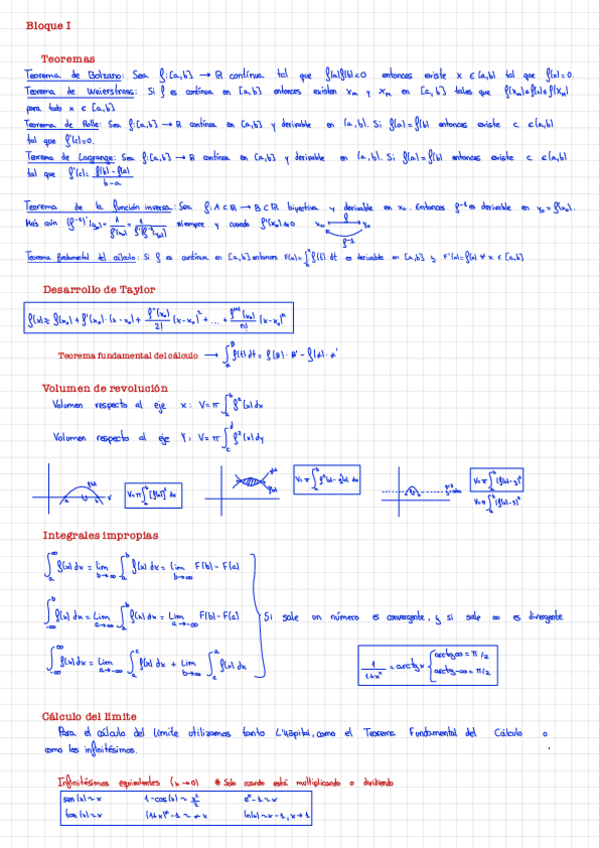 Bloque I
Teoremas
Teorema de Bolzano: Sea f:[a,b] → R continua tal que f(a)f(b)<0 entonces existe x ∈ (a,b) tal que f(x)=0.
Teorema de Weierstrass: Si f es continua en [a,b] entonces existen xm y xM en [a,b] tales que f(xm)≤f(x)≤f(xM)
para todo x ∈ [a,b]
Teorema de Rolle: Sea f:[a,b] → R continua en [a,b] y derivable en (a,b). Si f(a)=f(b) entonces existe c ∈(a,b)
tal que f'(c)=0.
Teorema de Lagrange: Sea f:[a,b] → R continua en [a,b] y derivable en (a,b). Si f(a)=f(b) entonces existe c ∈(a,b)
tal que f'(c)= f(b)-f(a) / b-a
Teorema de la función inversa: Sea f:A⊂R → B⊂R biyectiva y derivable en x₀. Entonces f⁻¹ es derivable en y₀=f(x₀).
Más aún (f⁻¹)'(y₀)= 1/f'(x₀) = 1/f'(f⁻¹(y₀)) siempre y cuando f'(x₀)≠0 x₀ f y₀
f⁻¹
Teorema fundamental del cálculo: Si f es continua en [a,b] entonces F(x)=∫ f(t) dt es derivable en [a,b] y F'(x)=f(x) ∀ x ∈ [a,b]
Desarrollo de Taylor
f(x)≈ f(x₀)+f'(x₀)·(x-x₀)+ f''(x₀)/2! (x-x₀)² + ... + (x₀)/n! (x-x₀)ⁿ
Teorema fundamental del cálculo → ∫ f(t)dt = f(β)·β' - f(α)·α'
Volumen de revolución
Volumen respecto al eje x: V=π∫ₐᵇ f²(x)dx
Volumen respecto al eje Y: V=π∫ f²(x)dy
V=π∫ₐᵇ [f(x)]² dx
Integrales impropias
∫ₐ^∞ f(x)dx = lim b→∞ ∫ₐᵇ f(x)dx = lim b→∞ F(b)-F(a)
∫ f(x)dx = lim a→-∞ ∫ₐᵇ f(x)dx = lim a→-∞ F(b)-F(a) Si sale un número es convergente, y si sale ∞ es divergente
∫ f(x)dx = lim a→-∞ ∫ f(x)dx + lim b→∞ ∫ f(x)dx
1/1+x² = arctg x { arctg ∞ = π/2
arctg -∞ = π/2
Cálculo del límite
Para el cálculo del límite utilizamos tanto L'Hôpital, como el Teorema Fundamental del Cálculo o
como los infinitésimos.
Infinitésimos equivalentes (x→0) * Solo cuando está multiplicando o dividiendo
sen(x)~x 1-cos(x)~x²/2 eˣ-1~x
tan(x)~x (1+x)^α-1~αx ln(x)~x-1, x→1